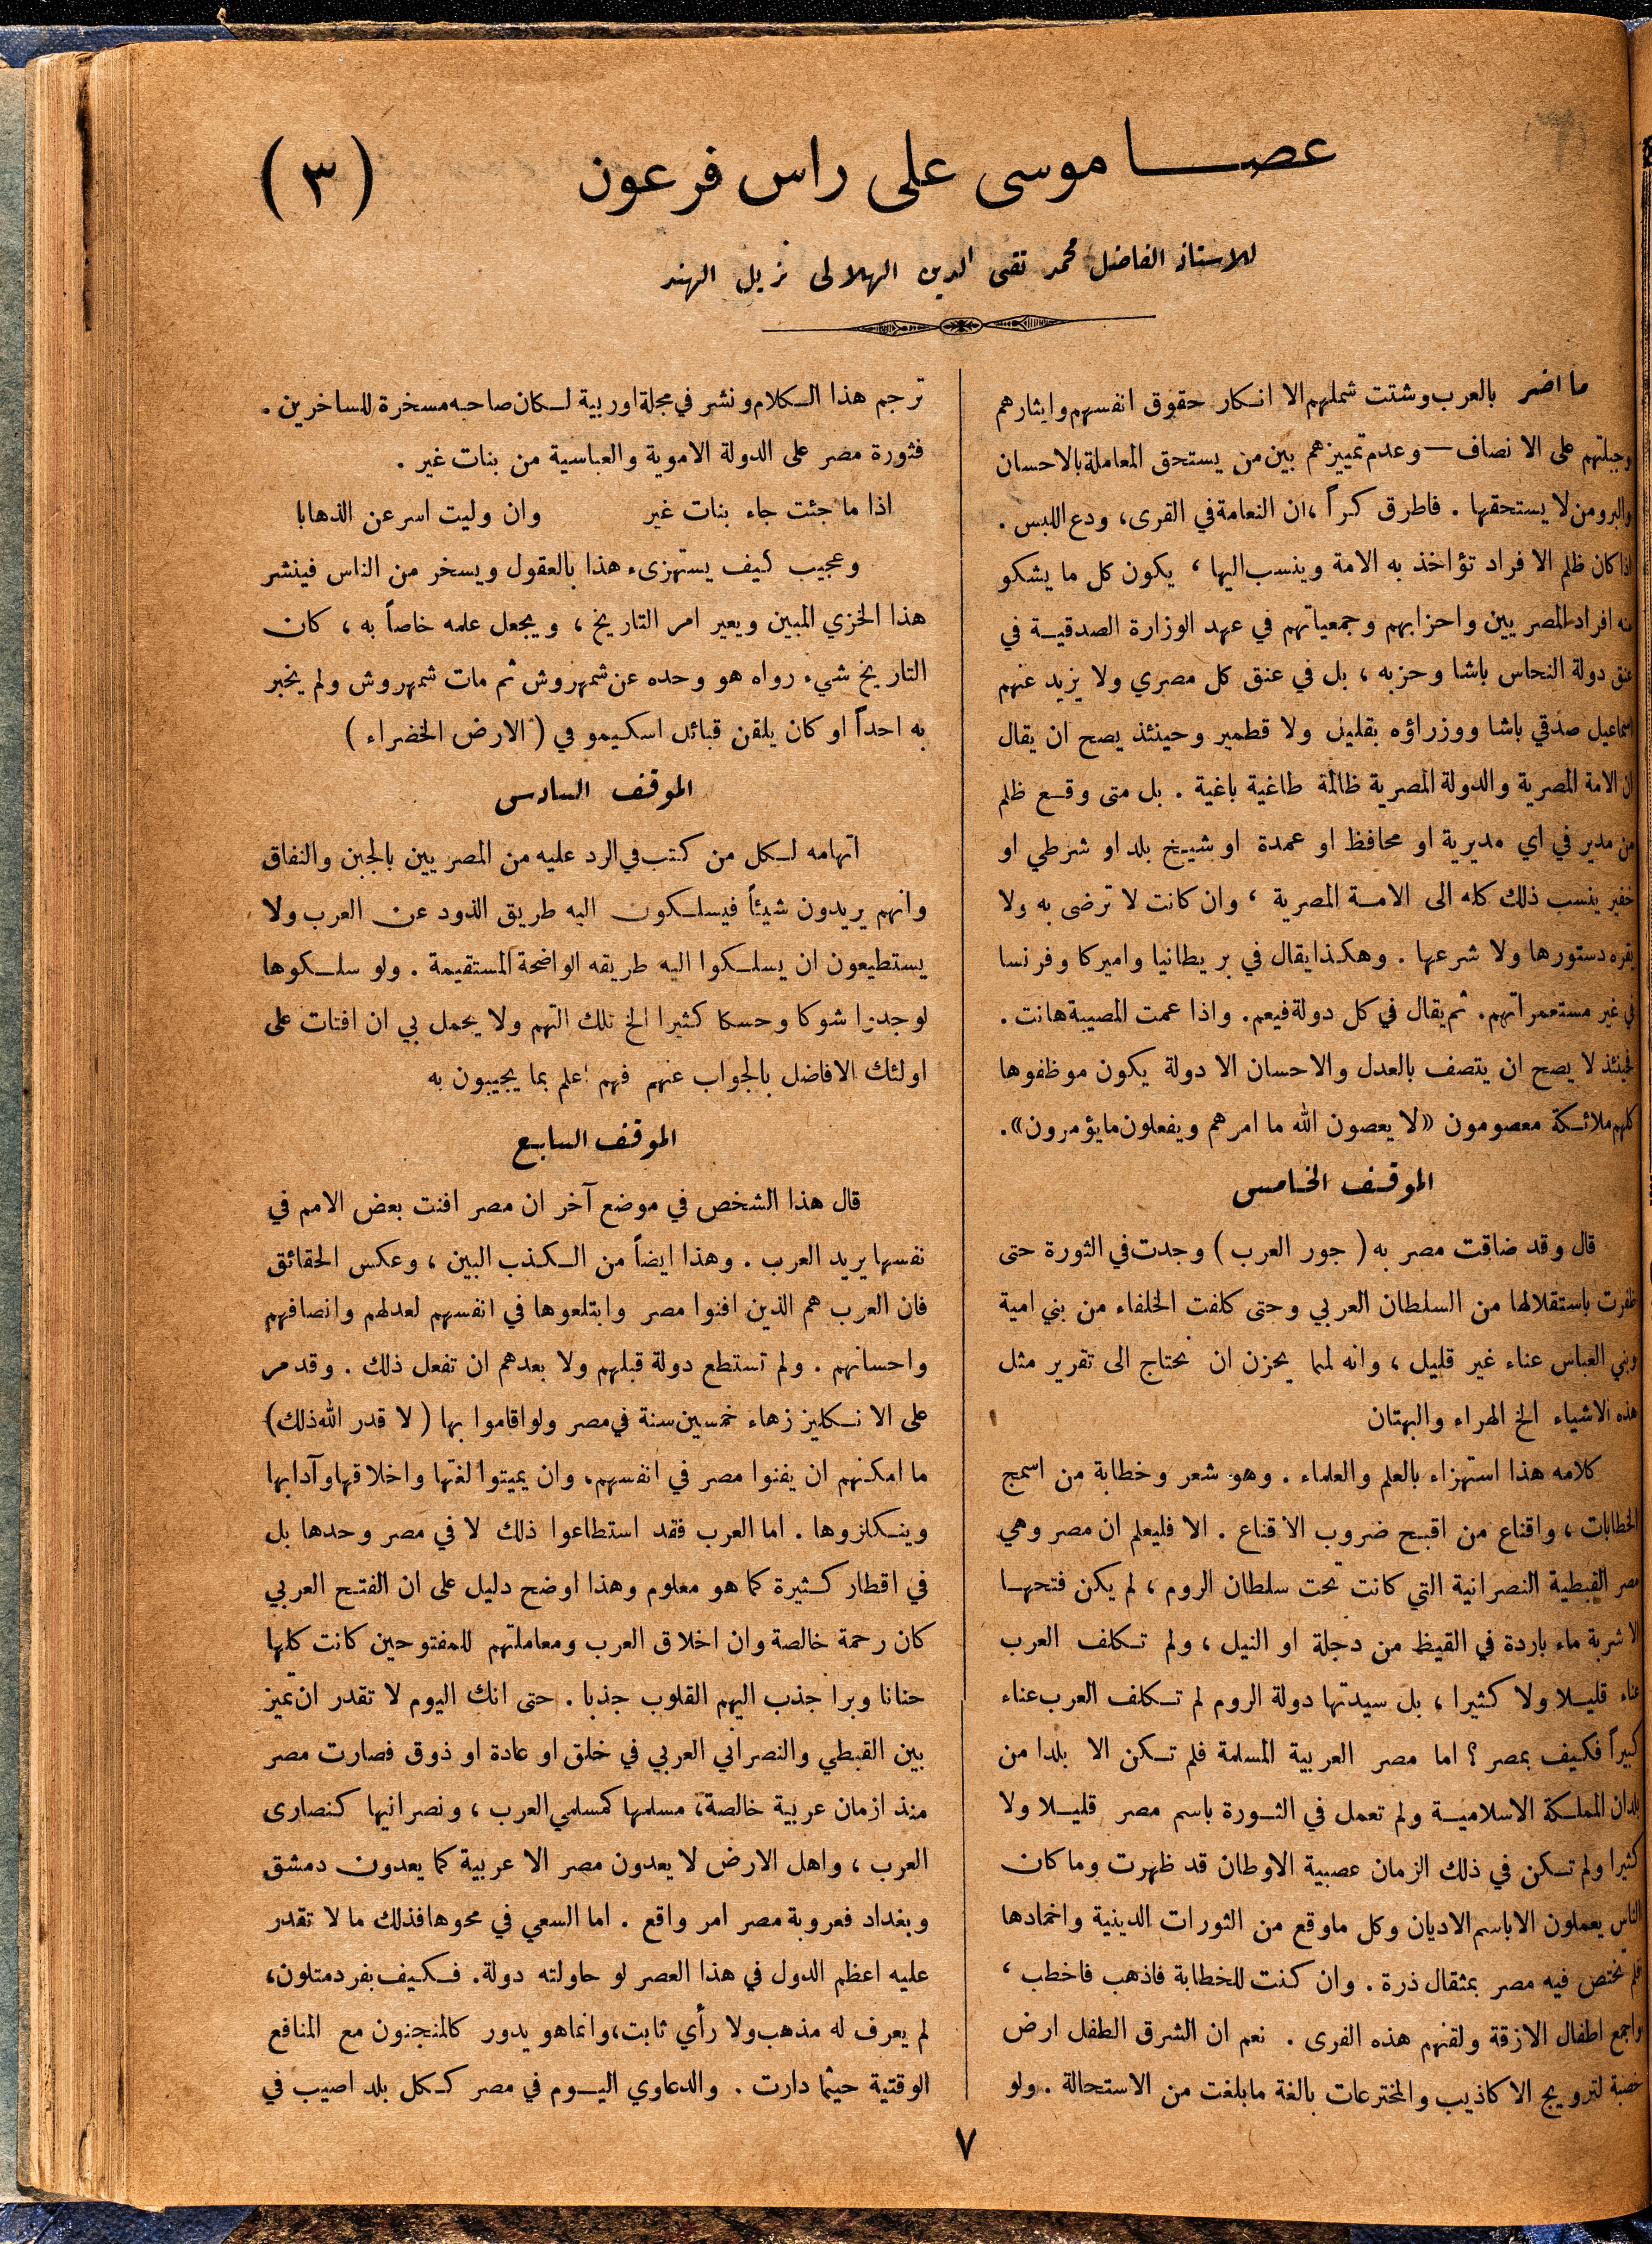 عصا موسى على راس فرعون
(٣)
للاستاذ الفاضل محمد تقى الدين الهلالى نزيل الهند
ما اضر بالعرب وشتت شملهم الا انكار حقوق انفسهم وايثارهم
وجبلتهم على الانصاف — وعدم تمييزهم بين من يستحق المعاملة بالاحسان
والبرومن لا يستحقها . فاطرق كراً ،ان النعامة في القرى، ودع اللبس .
اذا كان ظلم الافراد تؤاخذ به الامة وينسب اليها ، يكون كل ما يشكو
منه افراد المصريين واحزابهم وجمعياتهم في عهد الوزارة الصدقية في
عنق دولة النحاس باشا وحزبه ، بل في عنق كل مصري ولا يزيد عنهم
اسماعيل صدقي باشا ووزراؤه بقليل ولا قطمير وحينئذ يصح ان يقال
ان الامة المصرية والدولة المصرية ظالمة طاغية باغية . بل متى وقع ظلم
من مدير في اي مديرية او محافظ او عمدة او شيخ بلد او شرطي او
خفير ينسب ذلك كله الى الامة المصرية ، وان كانت لا ترضى به ولا
يقره دستورها ولا شرعها . وهكذا يقال في بريطانيا واميركا وفرنسا
في غير مستعمراتهم. ثم يقال في كل دولة فيعم. واذا عمت المصيبة هانت .
فحينئذ لا يصح ان يتصف بالعدل والاحسان الا دولة يكون موظفوها
كلهم ملائكة معصومون «لا يعصون الله ما امرهم ويفعلون مايؤمرون».
الموقف الخامس
قال وقد ضاقت مصر به ( جور العرب ) وجدت في الثورة حتى
ظفرت باستقلالها من السلطان العربي وحتى كلفت الخلفاء من بني امية
وبني العباس عناء غير قليل ، وانه لمما يحزن ان نحتاج الى تقرير مثل
هذه الاشياء الخ الهراء والبهتان
كلامه هذا استهزاء بالعلم والعلماء . وهو شعر وخطابة من اسمج
الخطابات ، واقناع من اقبح ضروب الاقناع . الا فليعلم ان مصر وهي
مصر القبطية النصرانية التي كانت تحت سلطان الروم ، لم يكن فتحها
الا شربة ماء باردة في القيظ من دجلة او النيل ، ولم تكلف العرب
عناء قليلا ولا كثيرا ، بل سيدتها دولة الروم لم تكلف العرب عناء
كبيراً فكيف بمصر ؟ اما مصر العربية المسلمة فلم تكن الا بلدا من
بلدان المملكة الاسلامية ولم تعمل في الثورة باسم مصر قليلا ولا
كثيرا ولم تكن في ذلك الزمان عصبية الاوطان قد ظهرت وما كان
الناس يعملون الا باسم الاديان وكل ماوقع من الثورات الدينية واخمادها
فلم تختص فيه مصر بمثقال ذرة . وان كنت للخطابة فاذهب فاخطب ،
واجمع اطفال الازقة ولقنهم هذه الفرى . نعم ان الشرق الطفل ارض
خصبة لترويج الاكاذيب والمخترعات بالغة مابلغت من الاستحالة . ولو
ترجم هذا الكلام ونشر في مجلة اوربية لكان صاحبه مسخرة للساخرين .
فثورة مصر على الدولة الاموية والعباسية من بنات غير .
اذا ما جئت جاء بنات غير وان وليت اسرعن الذهابا
وعجيب كيف يستهزىء هذا بالعقول ويسخر من الناس فينشر
هذا الخزي المبين ويعير امر التاريخ ، ويجعل علمه خاصاً به ، كان
التاريخ شيء رواه هو وحده عن شمهروش ثم مات شمهروش ولم يخبر
به احداً او كان يلقن قبائل اسكيمو في ( الارض الخضراء )
الموقف السادس
اتهامه لكل من كتب في الرد عليه من المصريين بالجبن والنفاق
وانهم يريدون شيئاً فيسلكون اليه طريق الذود عن العرب ولا
يستطيعون ان يسلكوا اليه طريقه الواضحة المستقيمة . ولو سلكوها
لوجدوا شوكا وحسكا كثيرا الخ تلك التهم ولا يجمل بي ان افتات على
اولئك الافاضل بالجواب عنهم فهم اعلم بما يجيبون به
الموقف السابع
قال هذا الشخص في موضع آخر ان مصر افنت بعض الامم في
نفسها يريد العرب . وهذا ايضاً من الكذب البين ، وعكس الحقائق
فان العرب هم الذين افنوا مصر وابتلعوها في انفسهم لعدلهم وانصافهم
واحسانهم . ولم تستطع دولة قبلهم ولا بعدهم ان تفعل ذلك . وقد مر
على الانكليز زهاء خمسين سنة في مصر ولو اقاموا بها ( لا قدر الله ذلك )
ما امكنهم ان يفنوا مصر في انفسهم، وان يميتوا لغتها واخلاقها وآدابها
وينكلزوها . اما العرب فقد استطاعوا ذلك لا في مصر وحدها بل
في اقطار كثيرة كما هو معلوم وهذا اوضح دليل على ان الفتح العربي
كان رحمة خالصة وان اخلاق العرب ومعاملتهم للمفتوحين كانت كلها
حنانا وبرا جذب اليهم القلوب جذبا . حتى انك اليوم لا تقدر ان تميز
بين القبطي والنصراني العربي في خلق او عادة او ذوق فصارت مصر
منذ ازمان عربية خالصة، مسلمها كمسلمي العرب ، ونصرانيها كنصارى
العرب ، واهل الارض لا يعدون مصر الا عربية كما يعدون دمشق
وبغداد فعروبة مصر امر واقع . اما السعي في محوها فذلك ما لا تقدر
عليه اعظم الدول في هذا العصر لو حاولته دولة. فكيف بفرد متلون،
لم يعرف له مذهب ولا رأي ثابت، وانما هو يدور كالمنجنون مع المنافع
الوقتية حيثما دارت . والدعاوي اليوم في مصر ككل بلد اصيب في
٧